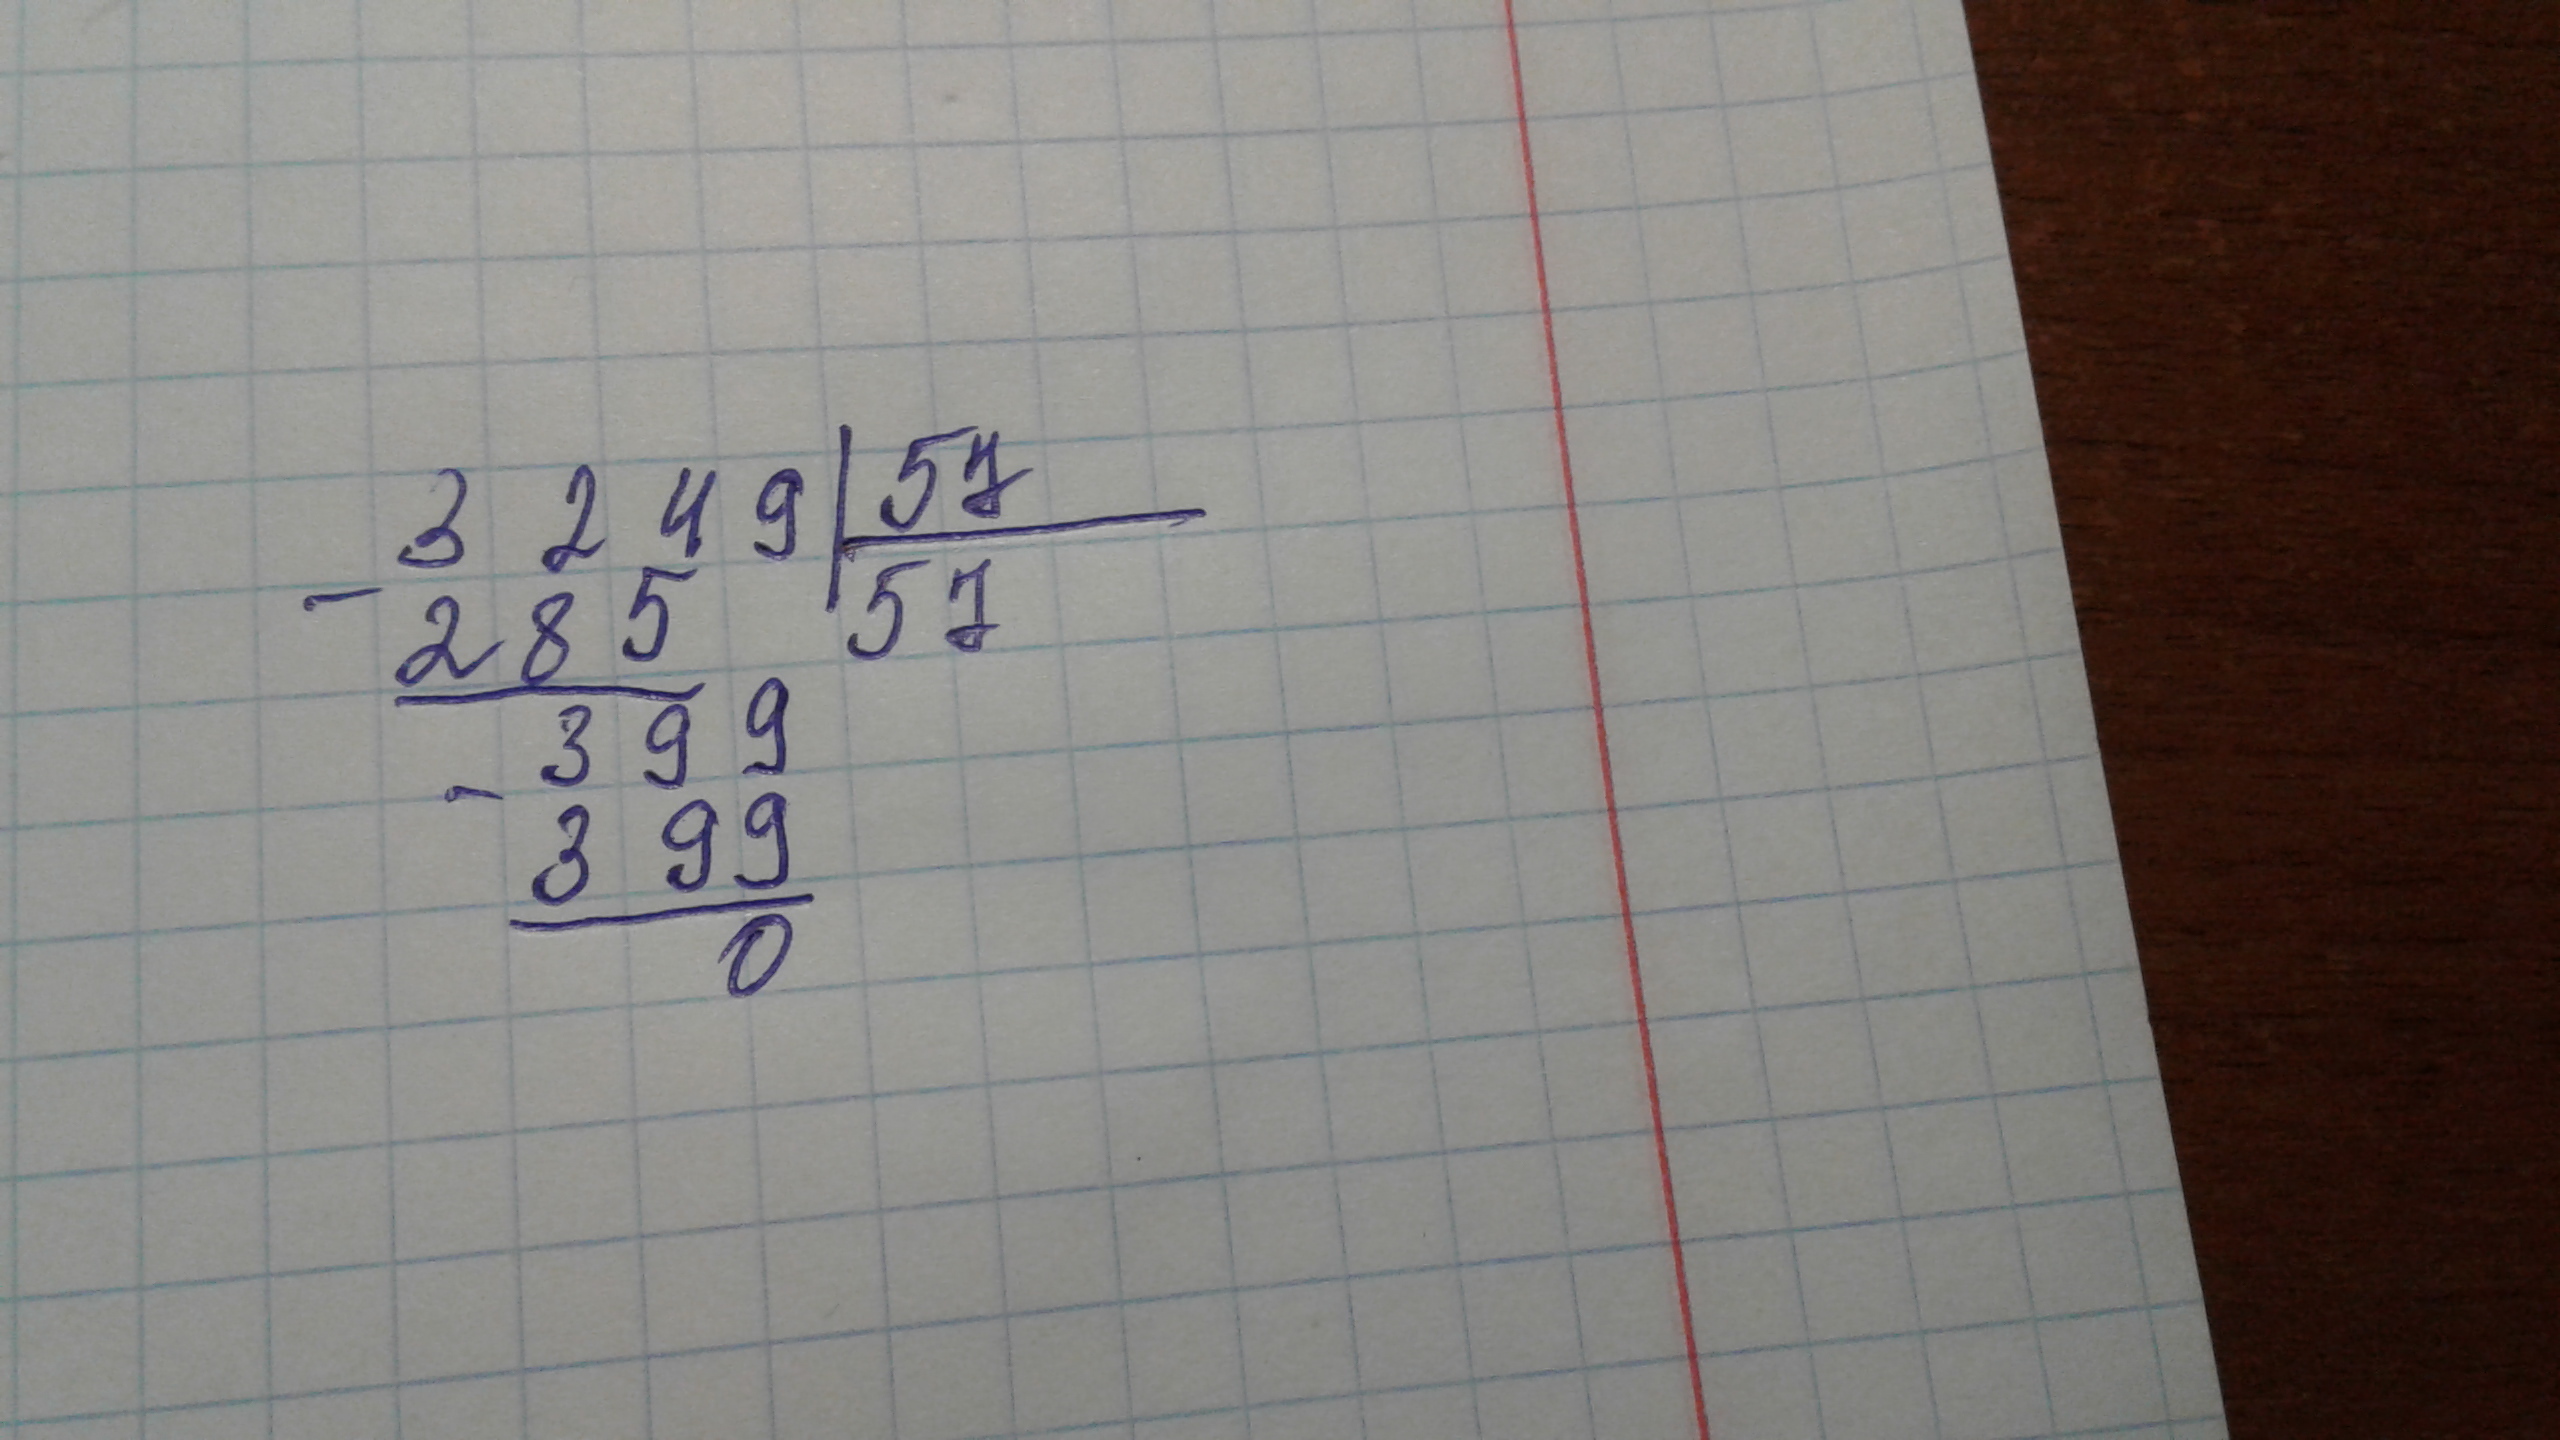 3249 57
- 285 57
399
- 399
0